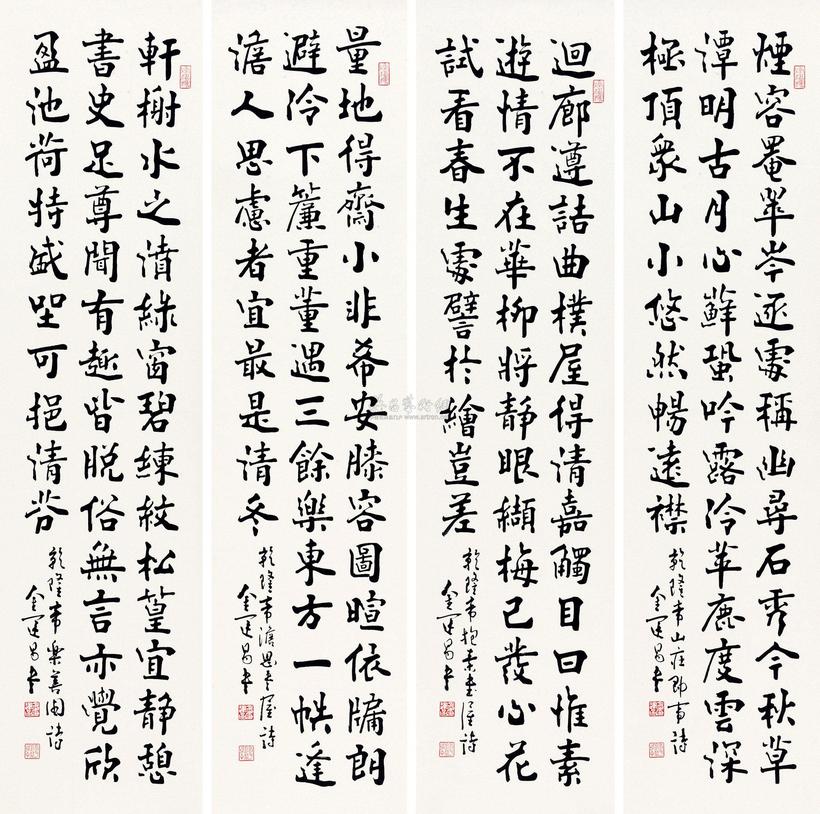 煙容罨翠岑逐處稱幽尋石秀今秋草
潭明古月心蘚蛩吟露冷苹鹿度雲深
極頂衆山小悠然暢遠襟
乾隆帝山庄即事詩
金運昌書
迴廊遵詰曲樸屋得清嘉觸目曰惟素
遊情不在華柳將靜眼纈梅已發心花
試看春生處譬於繪豈差
乾隆帝抱素書屋詩
金運昌書
量地得齋小非希安膝容圖暄依牖朗
避冷下簾重董遇三餘樂東方一帙逢
澹人思慮者宜最是清冬
乾隆帝澹思書屋詩
金運昌書
軒榭水之濆綠窗碧練紋松篁宜靜憩
書史足尊聞有趣皆脫俗無言亦覺欣
盈池荷特盛坐可挹清芬
乾隆帝樂善園詩
金運昌書